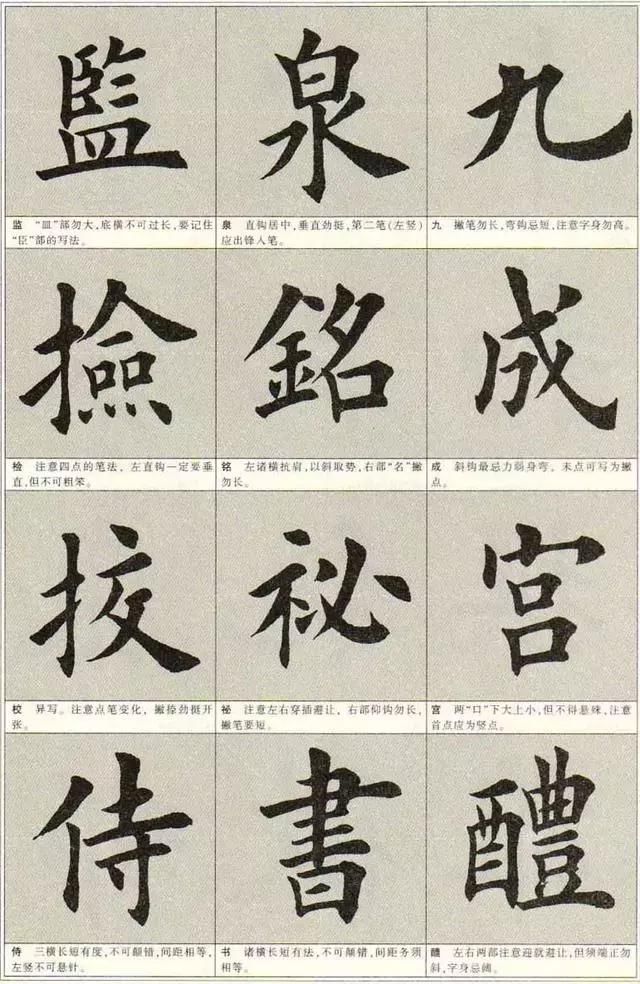 九
九 撇笔勿长,弯钩忌短,注意字身勿高。
成
成 斜钩最忌力弱身弯,末点可写为撇
点。
宫
宫 两“口”下大上小,但不得悬殊,注意
首点应为竖点。
醴
醴 左右两部注意迎就避让,但须端正勿
斜,字身忌阔。
泉
泉 直钩居中,垂直劲挺,第二笔(左竖)
应出锋入笔。
銘
铭 左诸横抗肩,以斜取势,右部“名”撇
勿长。
祕
祕 注意左右穿插避让,右部仰钩勿长,
撇笔要短。
書
书 诸横长短有法,不可颠错,间距务须
相等。
監
监 “皿”部勿大,底横不可过长,要记住
“臣”部的写法。
撿
检 注意四点的笔法,左直钩一定要垂
直,但不可粗笨。
挍
校 异写。注意点笔变化,撇捺劲挺开
张。
侍
侍 三横长短有度,不可颠错,间距相等,
左竖不可悬针。